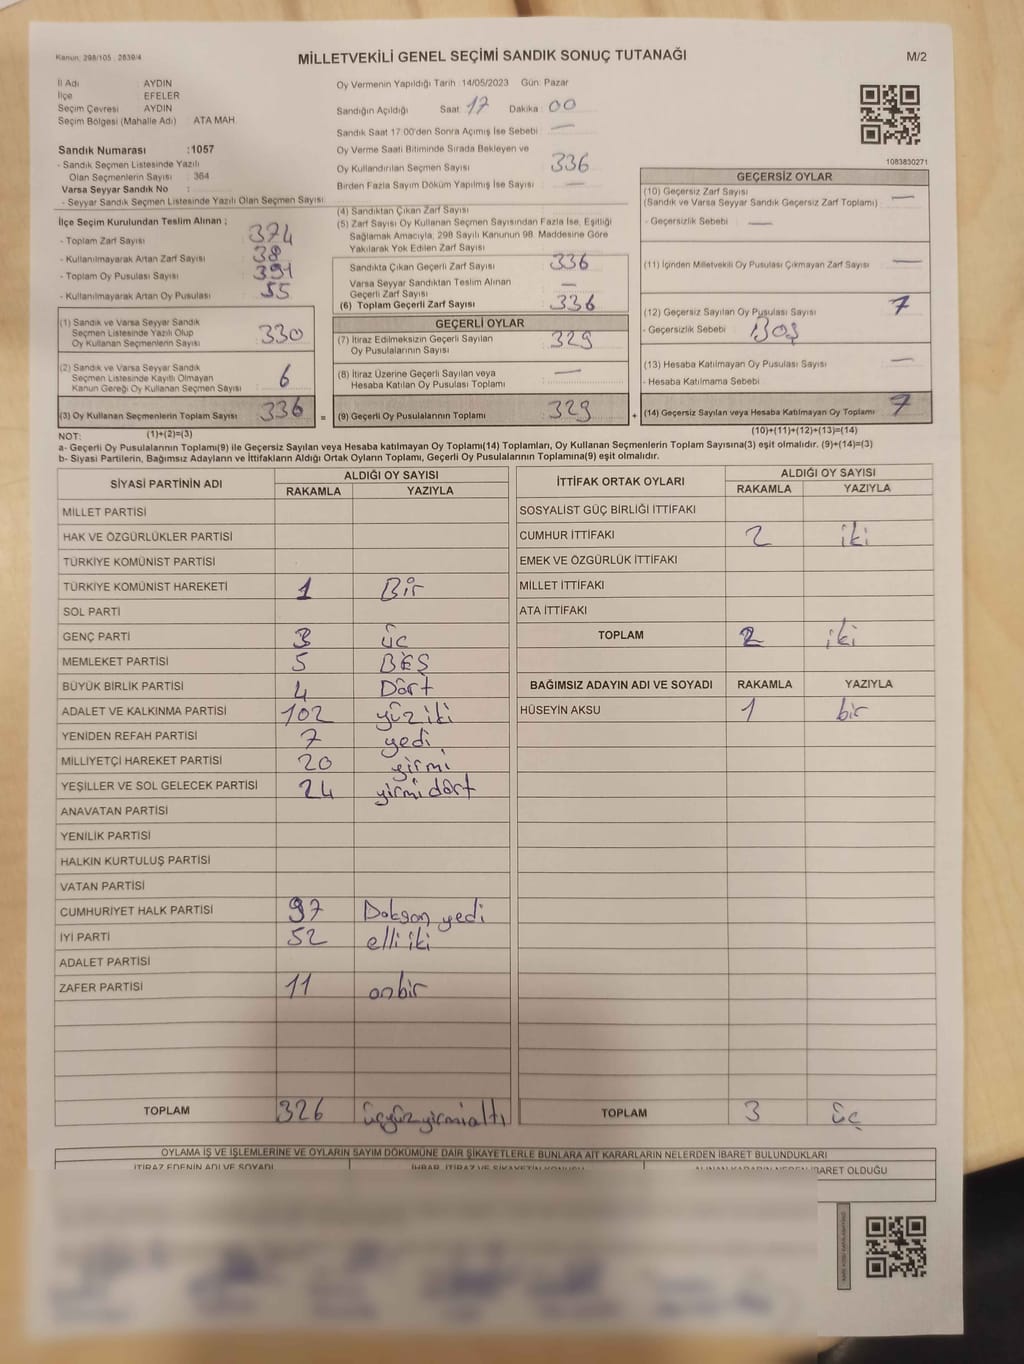 Kanun: 298/105 , 2839/4
MİLLETVEKİLİ GENEL SEÇİMİ SANDIK SONUÇ TUTANAĞI
M/2
İl Adı : AYDIN
İlçe : EFELER
Seçim Çevresi : AYDIN
Seçim Bölgesi (Mahalle Adı) : ATA MAH.
Oy Vermenin Yapıldığı Tarih : 14/05/2023 Gün: Pazar
Sandığın Açıldığı Saat: 17 Dakika : 00
Sandık Saat 17:00'den Sonra Açımış İse Sebebi : —
Oy Verme Saati Bitiminde Sırada Bekleyen ve
Oy Kullandırılan Seçmen Sayısı 336
Birden Fazla Sayım Döküm Yapılmış İse Sayısı : —
1083830271
Sandık Numarası :1057
- Sandık Seçmen Listesinde Yazılı
Olan Seçmenlerin Sayısı : 364
Varsa Seyyar Sandık No :
- Seyyar Sandık Seçmen Listesinde Yazılı Olan Seçmen Sayısı:
İlçe Seçim Kurulundan Teslim Alınan ;
- Toplam Zarf Sayısı 374
- Kullanılmayarak Artan Zarf Sayısı 38
- Toplam Oy Pusulası Sayısı 391
- Kullanılmayarak Artan Oy Pusulası 55
(1) Sandık ve Varsa Seyyar Sandık
Seçmen Listesinde Yazılı Olup
Oy Kullanan Seçmenlerin Sayısı 330
(2) Sandık ve Varsa Seyyar Sandık
Seçmen Listesinde Kayıtlı Olmayan
Kanun Gereği Oy Kullanan Seçmen Sayısı 6
(3) Oy Kullanan Seçmenlerin Toplam Sayısı 336
(1)+(2)=(3)
(4) Sandıktan Çıkan Zarf Sayısı
(5) Zarf Sayısı Oy Kullanan Seçmen Sayısından Fazla İse, Eşitliği
Sağlamak Amacıyla, 298 Sayılı Kanunun 98. Maddesine Göre
Yakılarak Yok Edilen Zarf Sayısı
Sandıkta Çıkan Geçerli Zarf Sayısı 336
Varsa Seyyar Sandıktan Teslim Alınan
Geçerli Zarf Sayısı —
(6) Toplam Geçerli Zarf Sayısı 336
GEÇERLİ OYLAR
(7) İtiraz Edilmeksizin Geçerli Sayılan
Oy Pusulalarının Sayısı 329
(8) İtiraz Üzerine Geçerli Sayılan veya
Hesaba Katılan Oy Pusulası Toplamı —
= (9) Geçerli Oy Pusulalarının Toplamı 329
GEÇERSİZ OYLAR
(10) Geçersiz Zarf Sayısı
(Sandık ve Varsa Seyyar Sandık Geçersiz Zarf Toplamı) —
- Geçersizlik Sebebi : —
(11) İçinden Milletvekili Oy Pusulası Çıkmayan Zarf Sayısı —
(12) Geçersiz Sayılan Oy Pusulası Sayısı 7
- Geçersizlik Sebebi : BOŞ
(13) Hesaba Katılmayan Oy Pusulası Sayısı —
- Hesaba Katılmama Sebebi
+ (14) Geçersiz Sayılan veya Hesaba Katılmayan Oy Toplamı 7
(10)+(11)+(12)+(13)=(14)
NOT:
a- Geçerli Oy Pusulalarının Toplamı(9) ile Geçersiz Sayılan veya Hesaba katılmayan Oy Toplamı(14) Toplamları, Oy Kullanan Seçmenlerin Toplam Sayısına(3) eşit olmalıdır. (9)+(14)=(3)
b- Siyasi Partilerin, Bağımsız Adayların ve İttifakların Aldığı Ortak Oyların Toplamı, Geçerli Oy Pusulalarının Toplamına(9) eşit olmalıdır.
SİYASİ PARTİNİN ADI ALDIĞI OY SAYISI
RAKAMLA YAZIYLA
MİLLET PARTİSİ
HAK VE ÖZGÜRLÜKLER PARTİSİ
TÜRKİYE KOMÜNİST PARTİSİ
TÜRKİYE KOMÜNİST HAREKETİ 1 Bir
SOL PARTİ
GENÇ PARTİ 3 üç
MEMLEKET PARTİSİ 5 BEŞ
BÜYÜK BİRLİK PARTİSİ 4 Dört
ADALET VE KALKINMA PARTİSİ 102 yüz iki
YENİDEN REFAH PARTİSİ 7 yedi
MİLLİYETÇİ HAREKET PARTİSİ 20 yirmi
YEŞİLLER VE SOL GELECEK PARTİSİ 24 yirmi dört
ANAVATAN PARTİSİ
YENİLİK PARTİSİ
HALKIN KURTULUŞ PARTİSİ
VATAN PARTİSİ
CUMHURİYET HALK PARTİSİ 97 Doksan yedi
İYİ PARTİ 52 elli iki
ADALET PARTİSİ
ZAFER PARTİSİ 11 onbir
TOPLAM 326 üçyüzyirmialtı
İTTİFAK ORTAK OYLARI ALDIĞI OY SAYISI
RAKAMLA YAZIYLA
SOSYALİST GÜÇ BİRLİĞİ İTTİFAKI
CUMHUR İTTİFAKI 2 iki
EMEK VE ÖZGÜRLÜK İTTİFAKI
MİLLET İTTİFAKI
ATA İTTİFAKI
TOPLAM 2 iki
BAĞIMSIZ ADAYIN ADI VE SOYADI RAKAMLA YAZIYLA
HÜSEYİN AKSU 1 bir
TOPLAM 3 üç
OYLAMA İŞ VE İŞLEMLERİNE VE OYLARIN SAYIM DÖKÜMÜNE DAİR ŞİKAYETLERLE BUNLARA AİT KARARLARIN NELERDEN İBARET BULUNDUKLARI
İTİRAZ EDENİN ADI VE SOYADI İHBAR, İTİRAZ VE ŞİKAYETİN KONUSU ALINAN KARARIN NEDEN İBARET OLDUĞU